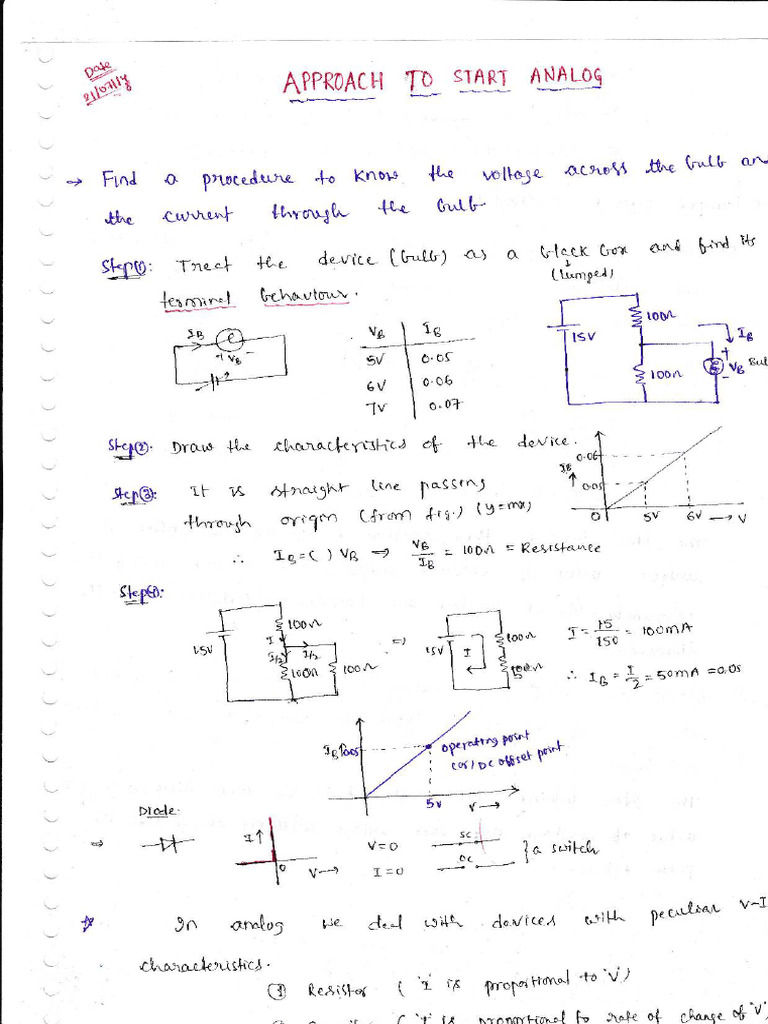 Date
21/07/14
APPROACH TO START ANALOG
→ Find a procedure to know the voltage across the bulb an
the current through the bulb
Step①: Treat the device (bulb) as a black box and find its
(lumped)
terminal behaviour.
IB
+ VB -
VB IB
5V 0.05
6V 0.06
7V 0.07
15V
100Ω
100Ω
IB
+
VB Bul
-
Step②: Draw the characteristics of the device.
Step③: It is straight line passing
through origin (from fig.) (y=mx)
∴ IB = ( ) VB ⇒ VB/IB = 100Ω = Resistance
IB ↑
0.06
0.05
0 5V 6V → V
Step④:
15V
100Ω
I
I/2 I/2
100Ω 100Ω
⇒
15V
I
100Ω
100Ω
I = 15/150 = 100mA
∴ IB = I/2 = 50mA = 0.05
IB ↑ 0.05
operating point
(or) DC offset point
5V V →
Diode:
⇒
I ↑
0
V →
V=0
I=0
SC
OC
} a switch
☆ In analog we deal with devices with peculiar V-I
characteristics.
① Resistor ( 'I' is proportional to 'V')
( 'I' is proportional to rate of change of 'V')